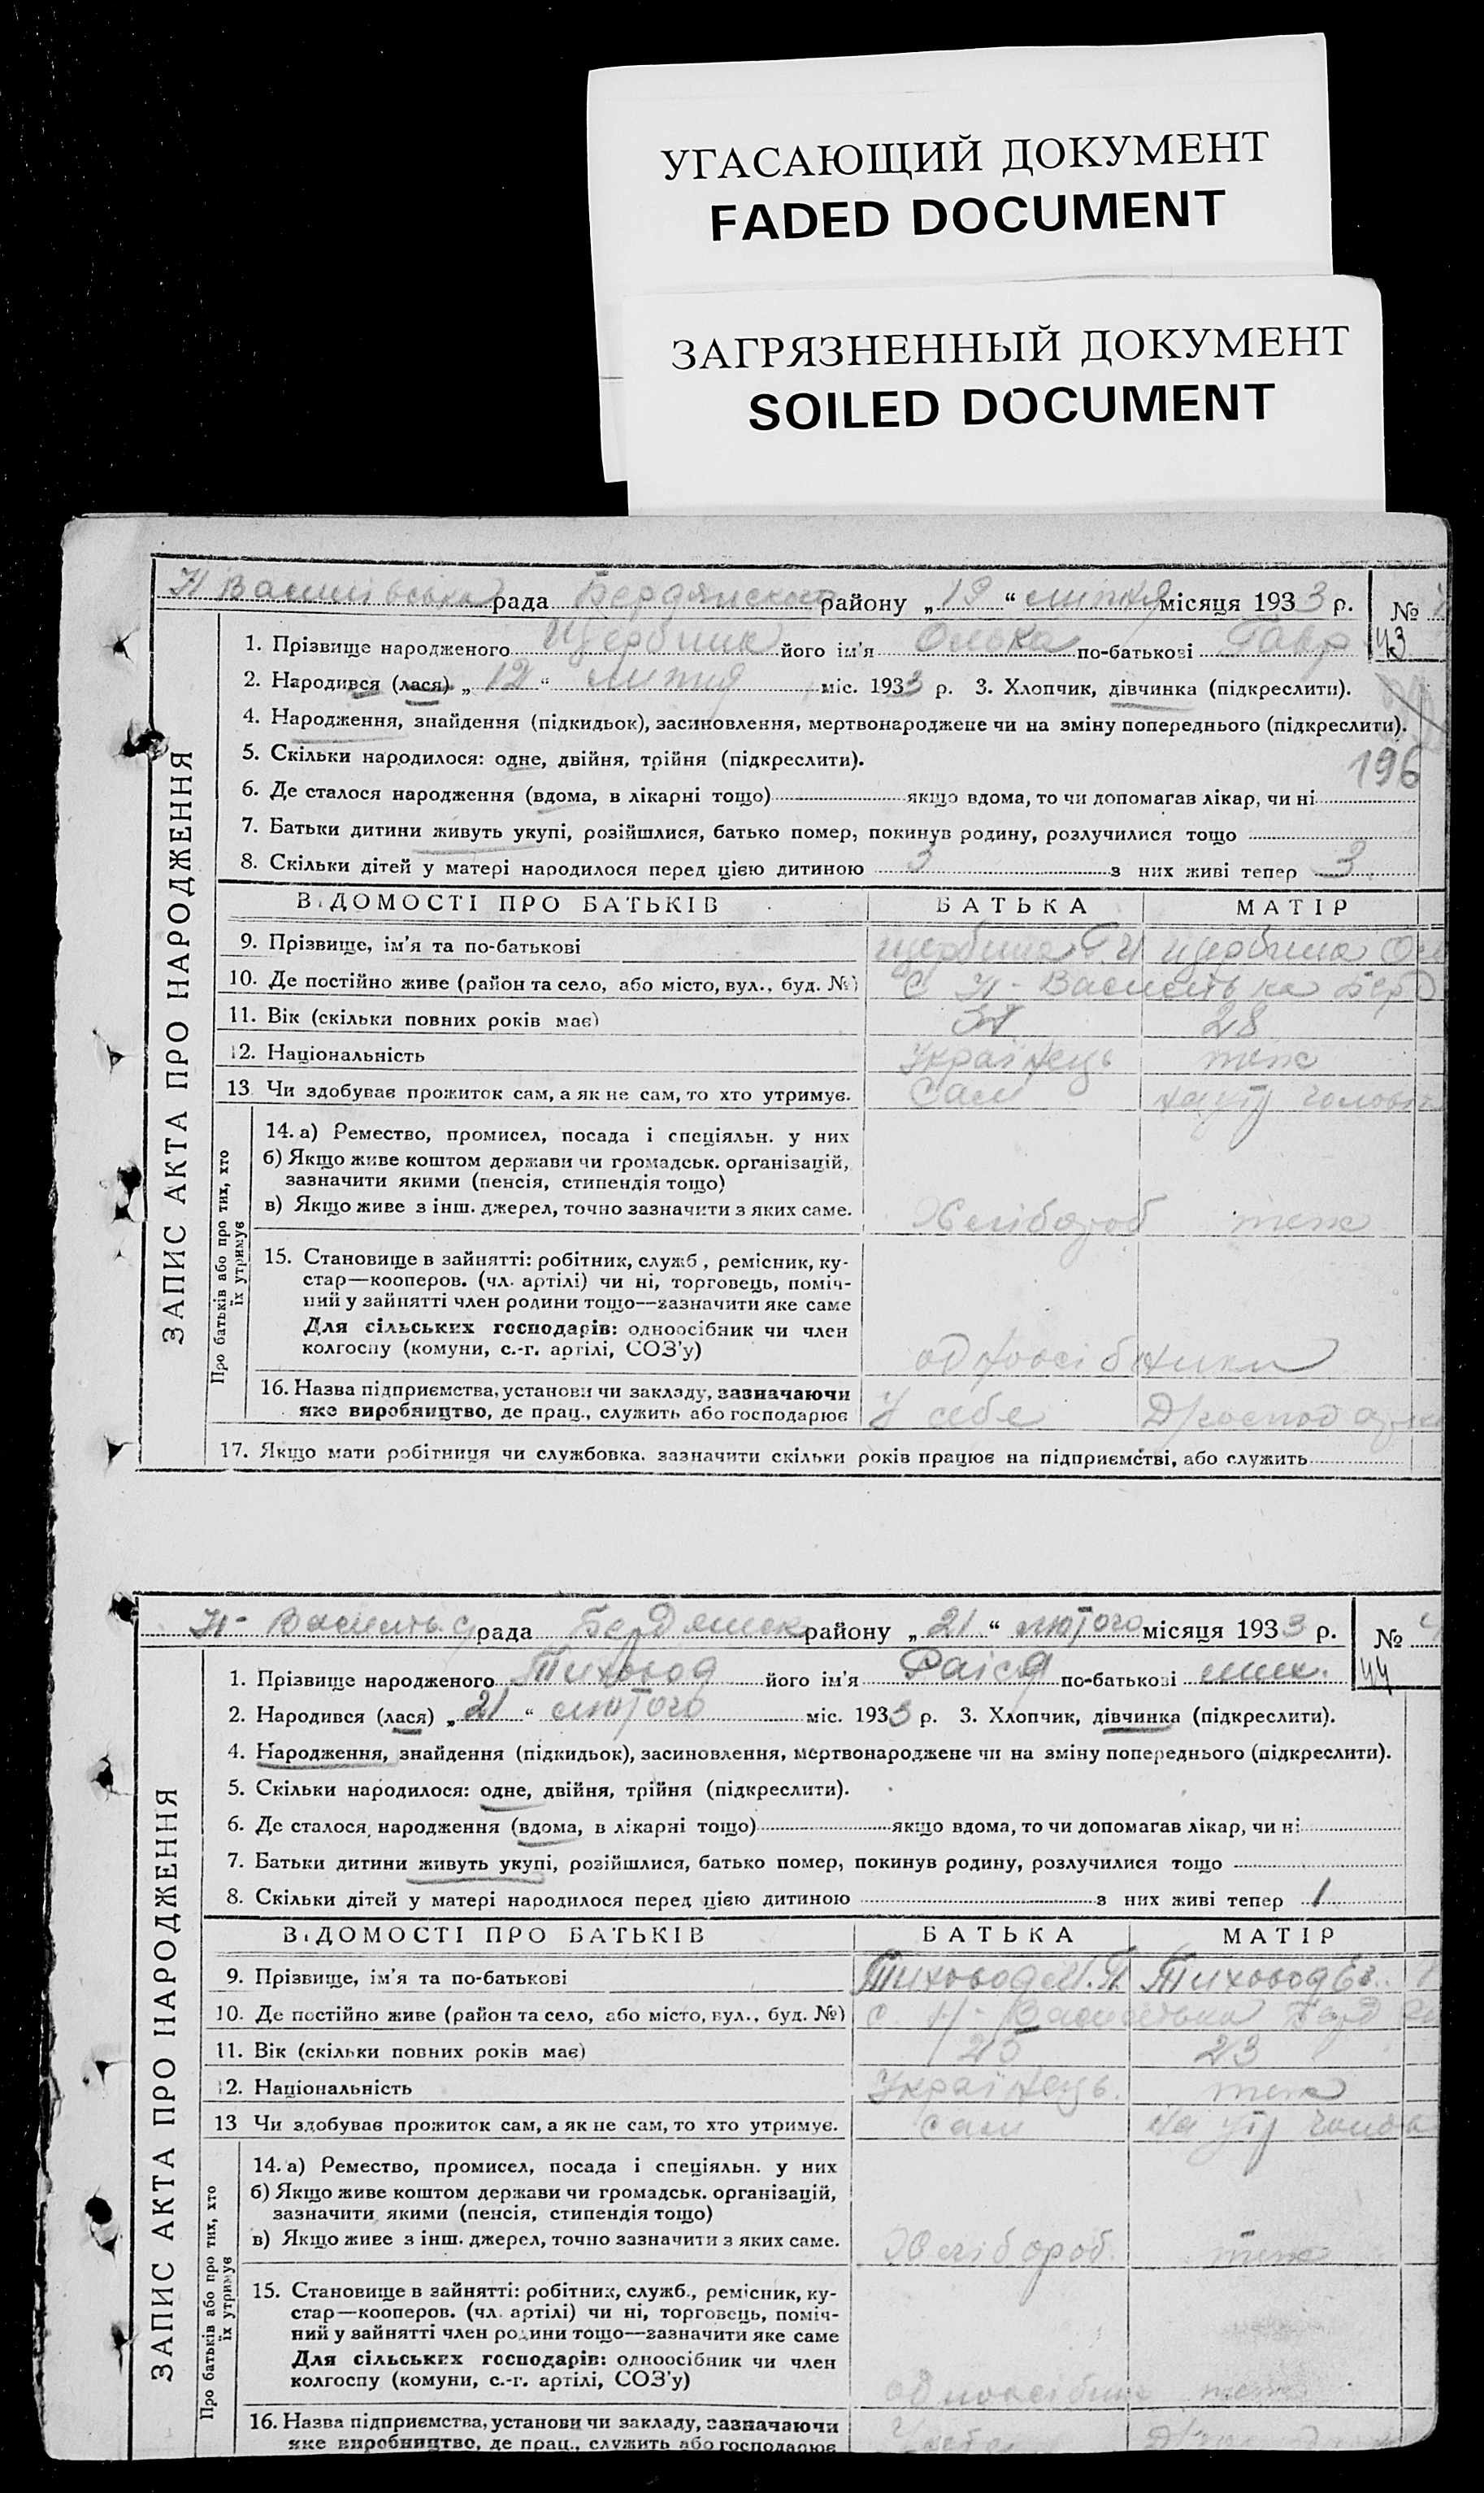 УГАСАЮЩИЙ ДОКУМЕНТ
FADED DOCUMENT
ЗАГРЯЗНЕННЫЙ ДОКУМЕНТ
SOILED DOCUMENT
ЗАПИС АКТА ПРО НАРОДЖЕННЯ
Н Василівська рада Бердянского району „19“ липня місяця 1933 р. №
1. Прізвище народженого його ім'я по-батькові Гавр 43
2. Народився (лася) „12“ липня міс. 1933 р. 3. Хлопчик, дівчинка (підкреслити).
4. Народження, знайдення (підкидьок), засиновлення, мертвонароджене чи на зміну попереднього (підкреслити).
5. Скільки народилося: одне, двійня, трійня (підкреслити).
196
6. Де сталося народження (вдома, в лікарні тощо) якщо вдома, то чи допомагав лікар, чи ні
7. Батьки дитини живуть укупі, розійшлися, батько помер, покинув родину, розлучилися тощо
8. Скільки дітей у матері народилося перед цією дитиною 3 з них живі тепер 3
ВІДОМОСТІ ПРО БАТЬКІВ БАТЬКА МАТІР
9. Прізвище, ім'я та по-батькові Щербина Г. И Щербина
10. Де постійно живе (район та село, або місто, вул., буд. №) С Н-Василівка Берд
11. Вік (скільки повних років має) 28
12. Національність Українець теж
13. Чи здобуває прожиток сам, а як не сам, то хто утримує. Сам на утр чоловік
Про батьків або про тих, хто їх утримує
14. а) Ремество, промисел, посада і спеціяльн. у них
б) Якщо живе коштом держави чи громадськ. організацій,
зазначити якими (пенсія, стипендія тощо)
в) Якщо живе з інш. джерел, точно зазначити з яких саме. Хлібороб теж
15. Становище в зайнятті: робітник, служб., ремісник, ку-
стар—кооперов. (чл. артілі) чи ні, торговець, поміч-
ний у зайнятті член родини тощо—зазначити яке саме
Для сільських господарів: одноосібник чи член
колгоспу (комуни, с.-г. артілі, СОЗ'у) одноосібники
16. Назва підприємства, установи чи закладу, зазначаючи
яке виробництво, де прац., служить або господарює У себе Д/господарка
17. Якщо мати робітниця чи службовка, зазначити скільки років працює на підприємстві, або служить
ЗАПИС АКТА ПРО НАРОДЖЕННЯ
Н-Василь. с/рада Бердянск району „21“ лютого місяця 1933 р. №
1. Прізвище народженого Тиховод його ім'я Раіса по-батькові 44
2. Народився (лася) „21“ лютого міс. 1933 р. 3. Хлопчик, дівчинка (підкреслити).
4. Народження, знайдення (підкидьок), засиновлення, мертвонароджене чи на зміну попереднього (підкреслити).
5. Скільки народилося: одне, двійня, трійня (підкреслити).
6. Де сталося народження (вдома, в лікарні тощо) якщо вдома, то чи допомагав лікар, чи ні
7. Батьки дитини живуть укупі, розійшлися, батько помер, покинув родину, розлучилися тощо
8. Скільки дітей у матері народилося перед цією дитиною з них живі тепер 1
ВІДОМОСТІ ПРО БАТЬКІВ БАТЬКА МАТІР
9. Прізвище, ім'я та по-батькові Тиховод М. П. Тиховод Єв.
10. Де постійно живе (район та село, або місто, вул., буд. №) с Н-Василівка Берд
11. Вік (скільки повних років має) 25 23
12. Національність Українець. теж
13 Чи здобуває прожиток сам, а як не сам, то хто утримує. сам на утр чолов
Про батьків або про тих, хто їх утримує
14. а) Ремество, промисел, посада і спеціяльн. у них
б) Якщо живе коштом держави чи громадськ. організацій,
зазначити якими (пенсія, стипендія тощо)
в) Якщо живе з інш. джерел, точно зазначити з яких саме. Хлібороб. теж
15. Становище в зайнятті: робітник, служб., ремісник, ку-
стар—кооперов. (чл. артілі) чи ні, торговець, поміч-
ний у зайнятті член родини тощо—зазначити яке саме
Для сільських господарів: одноосібник чи член
колгоспу (комуни, с.-г. артілі, СОЗ'у) одноосібник теж
16. Назва підприємства, установи чи закладу, зазначаючи
яке виробництво, де прац., служить або господарює У себе